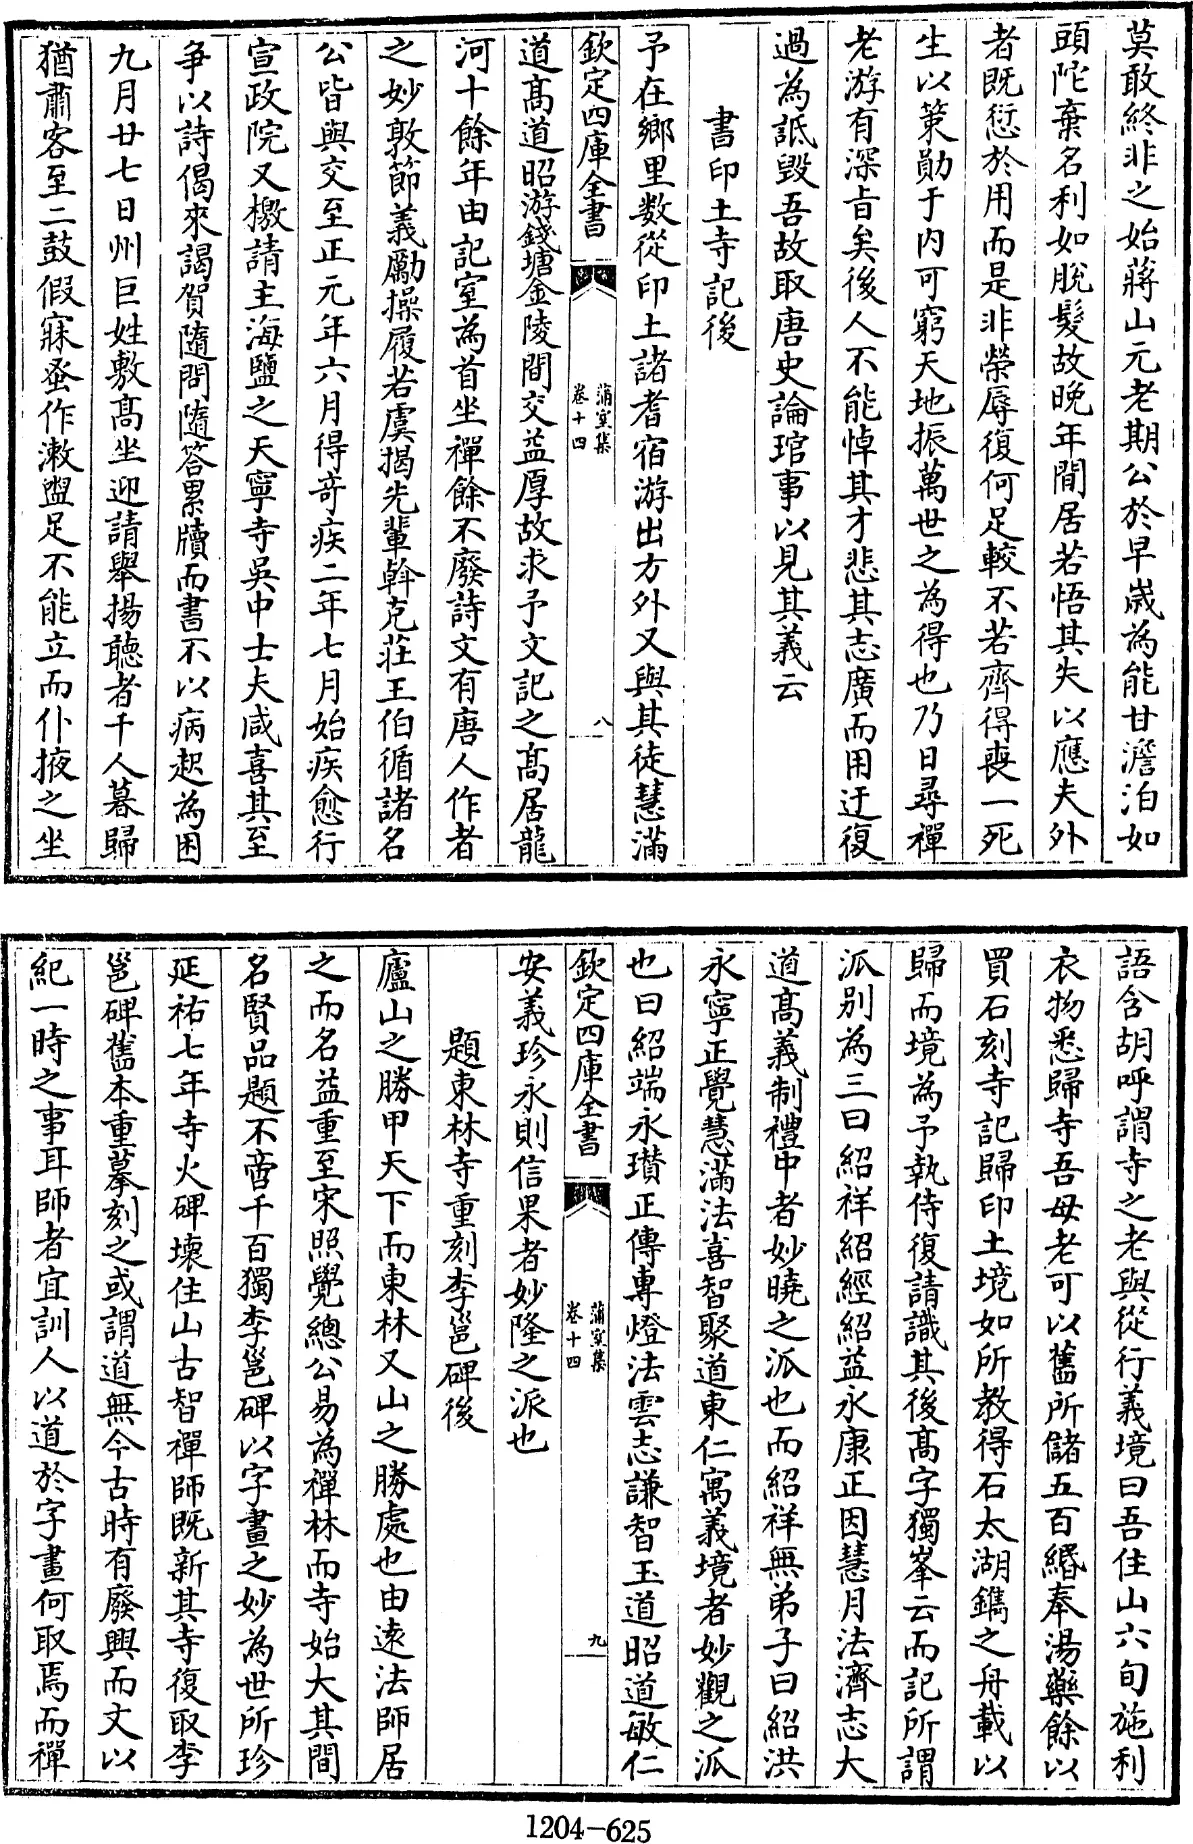 莫敢終非之始蔣山元老期公於早歲為能甘澹泊如
頭陀棄名利如脫髮故晚年閒居若悟其失以應夫外
者既愆於用而是非榮辱復何足較不若齊得喪一死
生以策勛于内可窮天地振萬世之為得也乃日尋禪
老游有深旨矣後人不能悼其才悲其志廣而用迂復
過為詆毀吾故取唐史論琯事以見其義云
書印土寺記後
予在鄉里數從印土諸耆宿游出方外又與其徒慧滿
欽定四庫全書
蒲室集
卷十四
八
道髙道昭游錢塘金陵間交益厚故求予文記之髙居龍
河十餘年由記室為首坐禪餘不廢詩文有唐人作者
之妙敦節義勵操履若虞揭先輩斡克莊王伯循諸名
公皆與交至正元年六月得竒疾二年七月始疾愈行
宣政院又檄請主海鹽之天寧寺吳中士夫咸喜其至
争以詩偈來謁賀隨問隨答累牘而書不以病起為困
九月廿七日州巨姓敷髙坐迎請舉揚聽者千人暮歸
猶肅客至二鼓假寐蚤作漱盥足不能立而仆掖之坐
語含胡呼謂寺之老與從行義境曰吾住山六旬施利
衣物悉歸寺吾母老可以舊所儲五百緡奉湯藥餘以
買石刻寺記歸印土境如所教得石太湖鐫之舟載以
歸而境為予執侍復請識其後髙字獨峯云而記所謂
派别為三曰紹祥紹經紹益永康正因慧月法濟志大
道髙義制禮中者妙曉之派也而紹祥無弟子曰紹洪
永寧正覺慧滿法喜智聚道東仁寓義境者妙觀之派
也曰紹端永瓚正傳專燈法雲志謙智玉道昭道敏仁
欽定四庫全書
蒲室集
卷十四
九
安義珍永則信果者妙隆之派也
題東林寺重刻李邕碑後
廬山之勝甲天下而東林又山之勝處也由逺法師居
之而名益重至宋照覺總公易為禪林而寺始大其間
名賢品題不啻千百獨李邕碑以字畫之妙為世所珍
延祐七年寺火碑壞住山古智禪師既新其寺復取李
邕碑舊本重摹刻之或謂道無今古時有廢興而文以
紀一時之事耳師者宜訓人以道於字畫何取焉而禪
1204-625